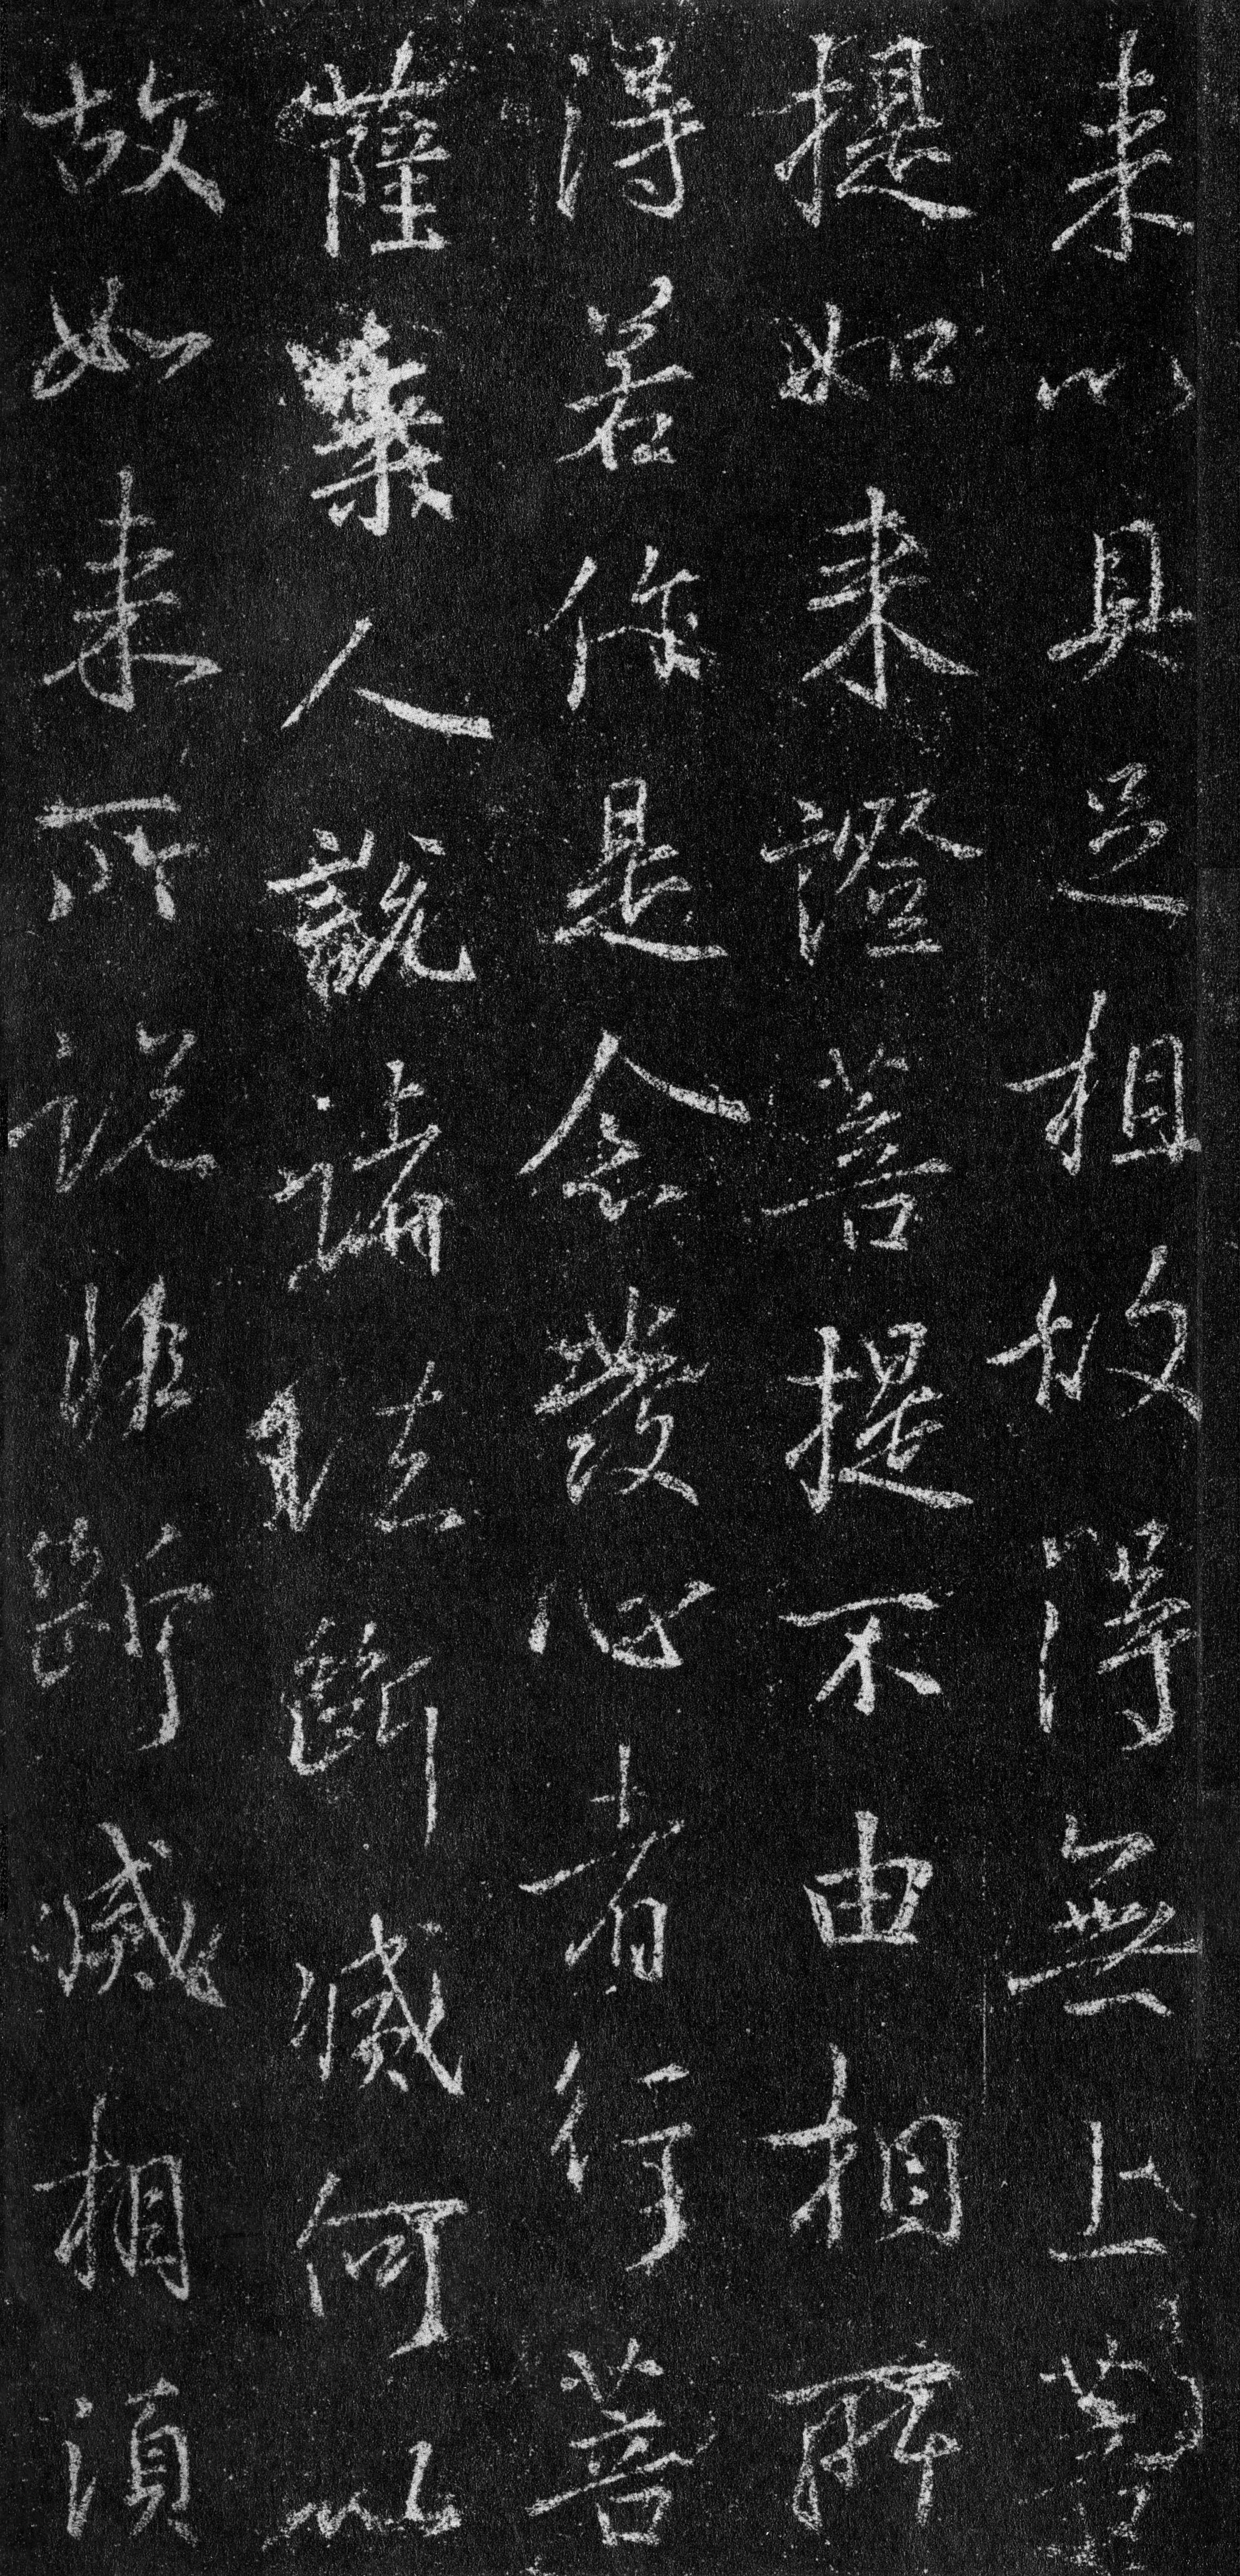 来以具足相故得無上菩
提如来證菩提不由相所
得若作是念發心者行菩
薩乘人說諸法斷滅何以
故如来所說惟斷滅相須